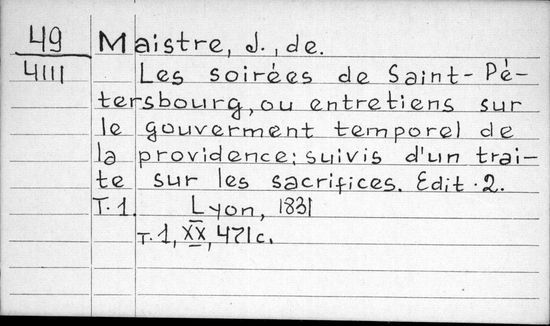 49 Maistre, J., de.
4111 Les soirées de Saint-Pé-
tersbourg, ou entretiens sur
le gouverment temporel de
la providence; suivis d'un trai-
te sur les sacrifices. Edit. 2.
T. 1. Lyon, 1831
T. 1, XX, 471c.